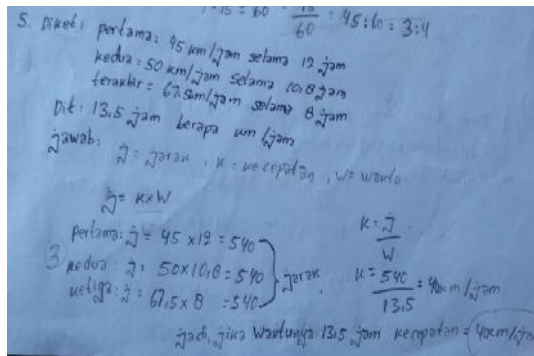 15 = 60 = 15/60 = 45:60 = 3:4
5. Diket: pertama: 45 km/jam selama 12 jam
kedua = 50 km/jam selama 10,8 jam
terakhir = 67,5km/jam selama 8 jam
Dit: 13,5 jam berapa km/jam
jawab:
J = jarak, K = kecepatan, W = waktu
J = K x W
pertama: J = 45 x 12 = 540
3 kedua: J = 50 x 10,8 = 540
ketiga: J = 67,5 x 8 = 540
jarak
K = J/W
K = 540/13,5 = 40km/jam
jadi, jika waktunya 13,5 jam kecepatan = 40km/jam